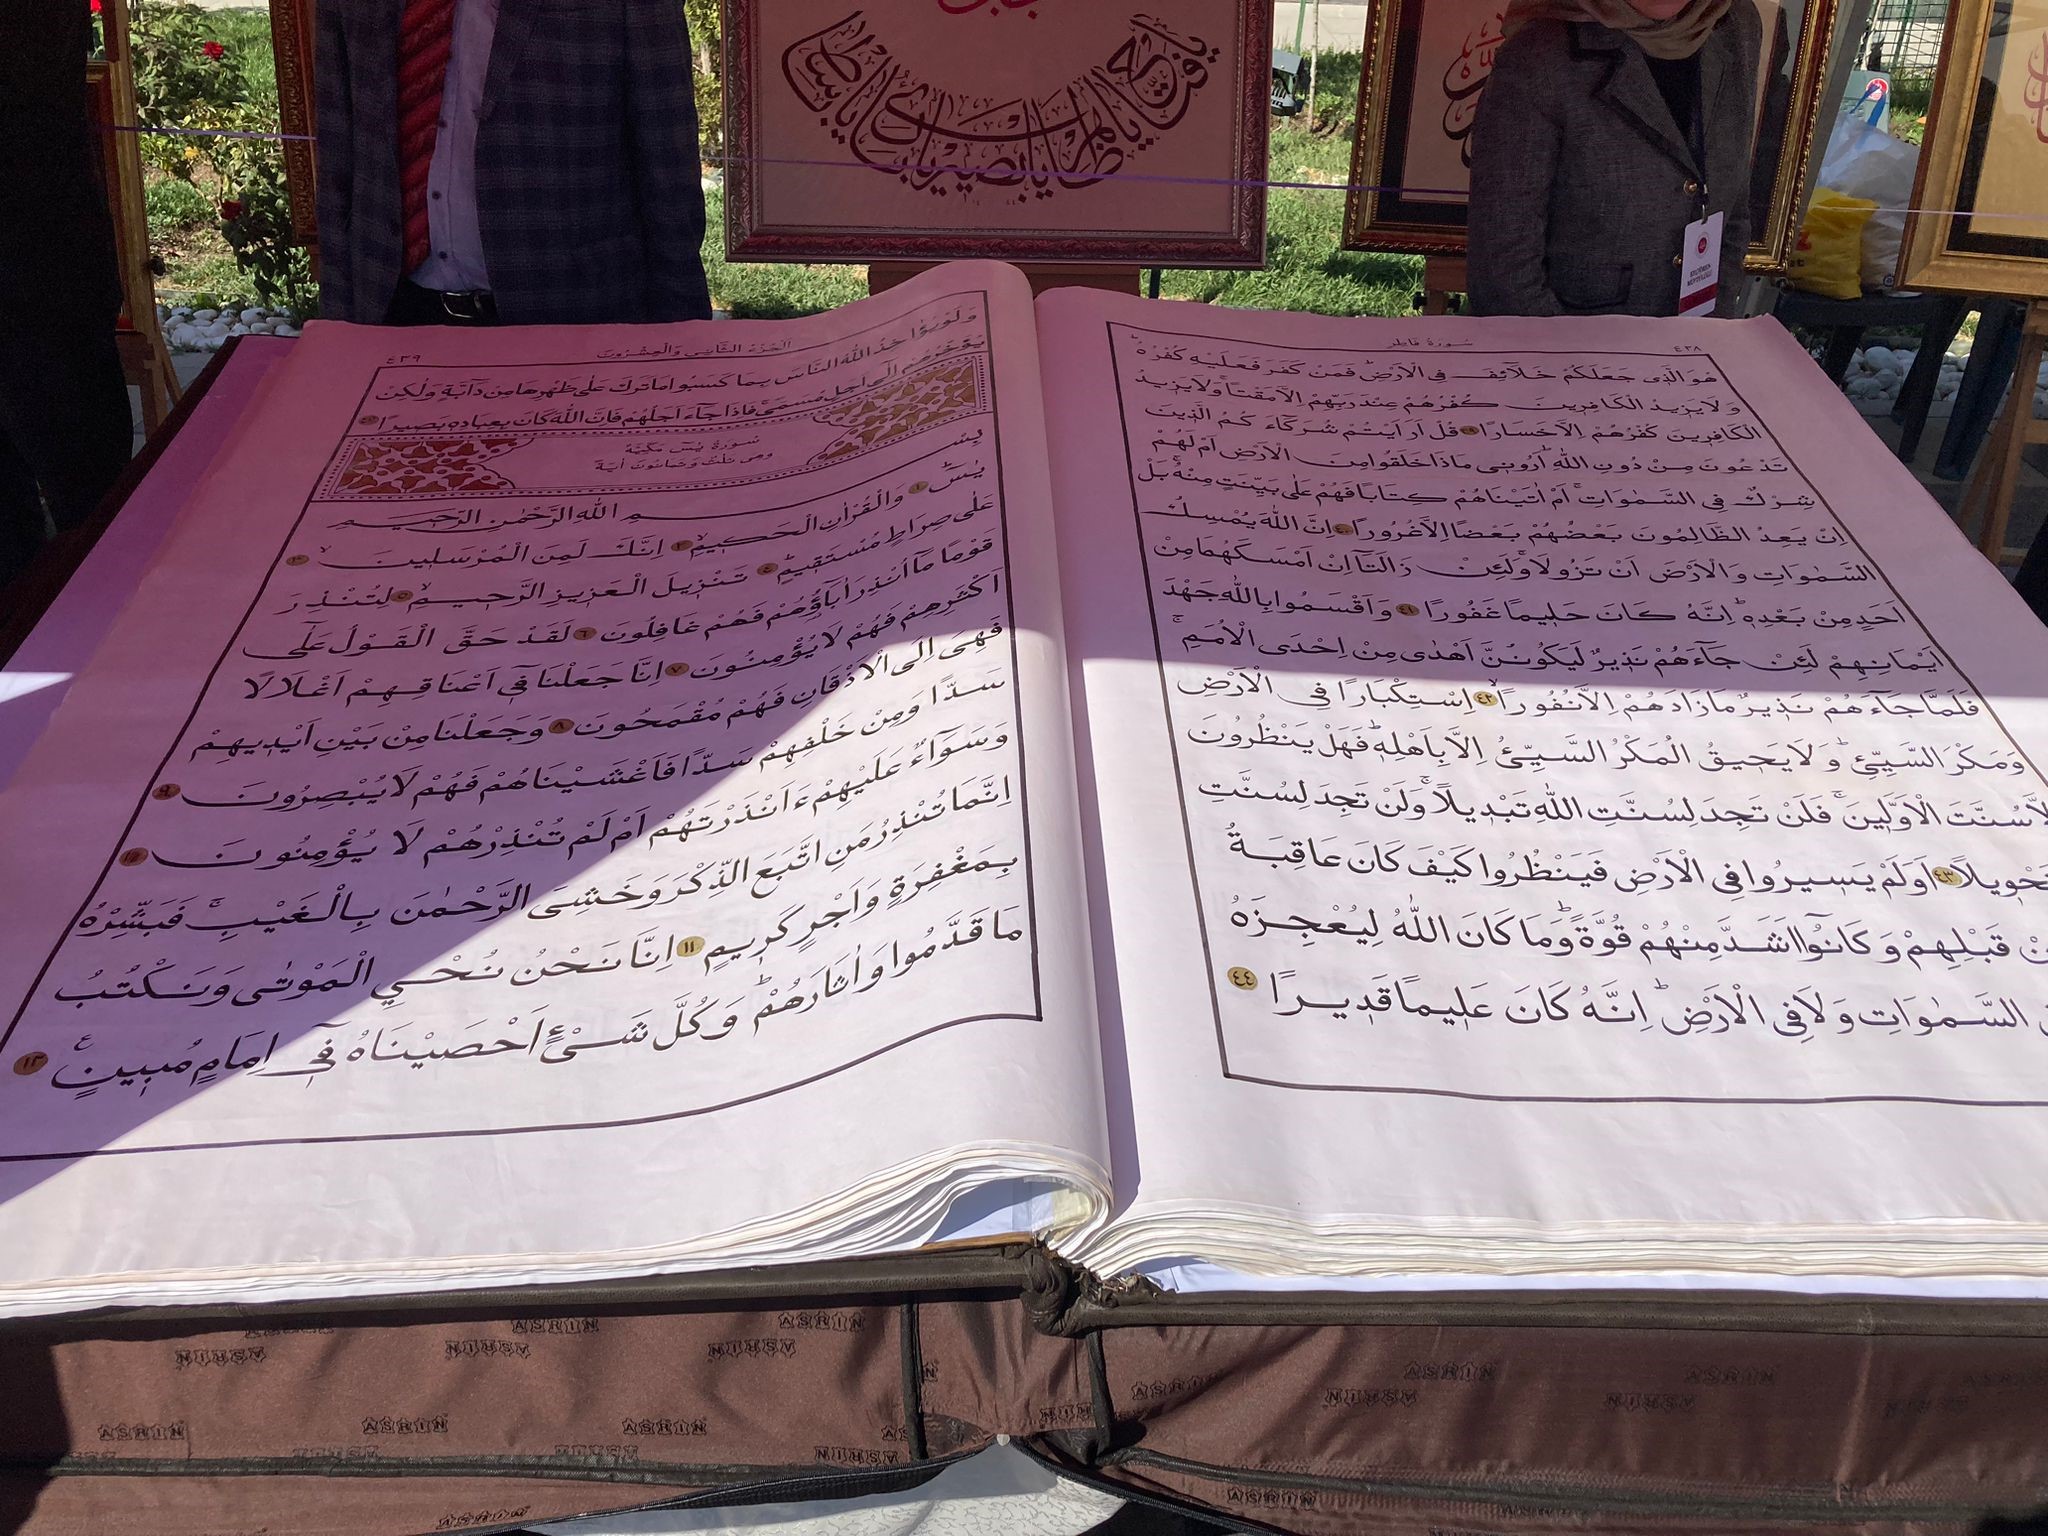 ٤٣٨
سُورَةُ فَاطِرٍ
هُوَ الَّذِى جَعَلَكُمْ خَلَآئِفَ فِى الْاَرْضِۜ فَمَنْ كَفَرَ فَعَلَيْهِ كُفْرُهُۜ
وَلَا يَزِيدُ الْكَافِرِينَ كُفْرُهُمْ عِنْدَ رَبِّهِمْ اِلَّا مَقْتًا وَلَا يَزِيدُ
الْكَافِرِينَ كُفْرُهُمْ اِلَّا خَسَارًا ٣٩ قُلْ اَرَاَيْتُمْ شُرَكَآءَكُمُ الَّذِينَ
تَدْعُونَ مِنْ دُونِ اللّٰهِ اَرُونِى مَاذَا خَلَقُوا مِنَ الْاَرْضِ اَمْ لَهُمْ
شِرْكٌ فِى السَّمٰوَاتِۚ اَمْ اٰتَيْنَاهُمْ كِتَابًا فَهُمْ عَلٰى بَيِّنَتٍ مِنْهُۚ بَلْ
اِنْ يَعِدُ الظَّالِمُونَ بَعْضُهُمْ بَعْضًا اِلَّا غُرُورًا ٤٠ اِنَّ اللّٰهَ يُمْسِكُ
السَّمٰوَاتِ وَالْاَرْضَ اَنْ تَزُولَاۚ وَلَئِنْ زَالَتَآ اِنْ اَمْسَكَهُمَا مِنْ
اَحَدٍ مِنْ بَعْدِهِۜ اِنَّهُ كَانَ حَلِيمًا غَفُورًا ٤١ وَاَقْسَمُوا بِاللّٰهِ جَهْدَ
اَيْمَانِهِمْ لَئِنْ جَآءَهُمْ نَذِيرٌ لَيَكُونُنَّ اَهْدٰى مِنْ اِحْدَى الْاُمَمِۚ
فَلَمَّا جَآءَهُمْ نَذِيرٌ مَا زَادَهُمْ اِلَّا نُفُورًاۙ ٤٢ اِسْتِكْبَارًا فِى الْاَرْضِ
وَمَكْرَ السَّيِّئِۜ وَلَا يَحِيقُ الْمَكْرُ السَّيِّئُ اِلَّا بِاَهْلِهِۜ فَهَلْ يَنْظُرُونَ
اِلَّا سُنَّتَ الْاَوَّلِينَۚ فَلَنْ تَجِدَ لِسُنَّتِ اللّٰهِ تَبْدِيلًاۚ وَلَنْ تَجِدَ لِسُنَّتِ
تَحْوِيلًا ٤٣ اَوَلَمْ يَسِيرُوا فِى الْاَرْضِ فَيَنْظُرُوا كَيْفَ كَانَ عَاقِبَةُ
مِنْ قَبْلِهِمْ وَكَانُوٓا اَشَدَّ مِنْهُمْ قُوَّةًۜ وَمَا كَانَ اللّٰهُ لِيُعْجِزَهُ
السَّمٰوَاتِ وَلَا فِى الْاَرْضِۜ اِنَّهُ كَانَ عَلِيمًا قَدِيرًا ٤٤
اَلْجُزْءُ الثَّانِى وَالْعِشْرُونَ
٤٣٩
وَلَوْ يُؤَاخِذُ اللّٰهُ النَّاسَ بِمَا كَسَبُوا مَا تَرَكَ عَلٰى ظَهْرِهَا مِنْ دَآبَّةٍ وَلٰكِنْ
يُؤَخِّرُهُمْ اِلٰٓى اَجَلٍ مُسَمًّىۚ فَاِذَا جَآءَ اَجَلُهُمْ فَاِنَّ اللّٰهَ كَانَ بِعِبَادِهِ بَصِيرًا ٤٥
سُورَةُ يٰسٓ مَكِّيَّةٌ
وَهِىَ ثَلٰثٌ وَثَمَانُونَ اٰيَةً
بِسْمِ اللّٰهِ الرَّحْمٰنِ الرَّحِيمِ
يٰسٓ ١ وَالْقُرْاٰنِ الْحَكِيمِۙ ٢ اِنَّكَ لَمِنَ الْمُرْسَلِينَۙ ٣
عَلٰى صِرَاطٍ مُسْتَقِيمٍۜ ٤ تَنْزِيلَ الْعَزِيزِ الرَّحِيمِۙ ٥ لِتُنْذِرَ
قَوْمًا مَآ اُنْذِرَ اٰبَآؤُهُمْ فَهُمْ غَافِلُونَ ٦ لَقَدْ حَقَّ الْقَوْلُ عَلٰٓى
اَكْثَرِهِمْ فَهُمْ لَا يُؤْمِنُونَ ٧ اِنَّا جَعَلْنَا فِىٓ اَعْنَاقِهِمْ اَغْلَالًا
فَهِىَ اِلَى الْاَذْقَانِ فَهُمْ مُقْمَحُونَ ٨ وَجَعَلْنَا مِنْ بَيْنِ اَيْدِيهِمْ
سَدًّا وَمِنْ خَلْفِهِمْ سَدًّا فَاَغْشَيْنَاهُمْ فَهُمْ لَا يُبْصِرُونَ ٩
وَسَوَآءٌ عَلَيْهِمْ ءَاَنْذَرْتَهُمْ اَمْ لَمْ تُنْذِرْهُمْ لَا يُؤْمِنُونَ ١٠
اِنَّمَا تُنْذِرُ مَنِ اتَّبَعَ الذِّكْرَ وَخَشِىَ الرَّحْمٰنَ بِالْغَيْبِۚ فَبَشِّرْهُ
بِمَغْفِرَةٍ وَاَجْرٍ كَرِيمٍ ١١ اِنَّا نَحْنُ نُحْيِى الْمَوْتٰى وَنَكْتُبُ
مَا قَدَّمُوا وَاٰثَارَهُمْۜ وَكُلَّ شَىْءٍ اَحْصَيْنَاهُ فِىٓ اِمَامٍ مُبِينٍ ١٢
ASRIN